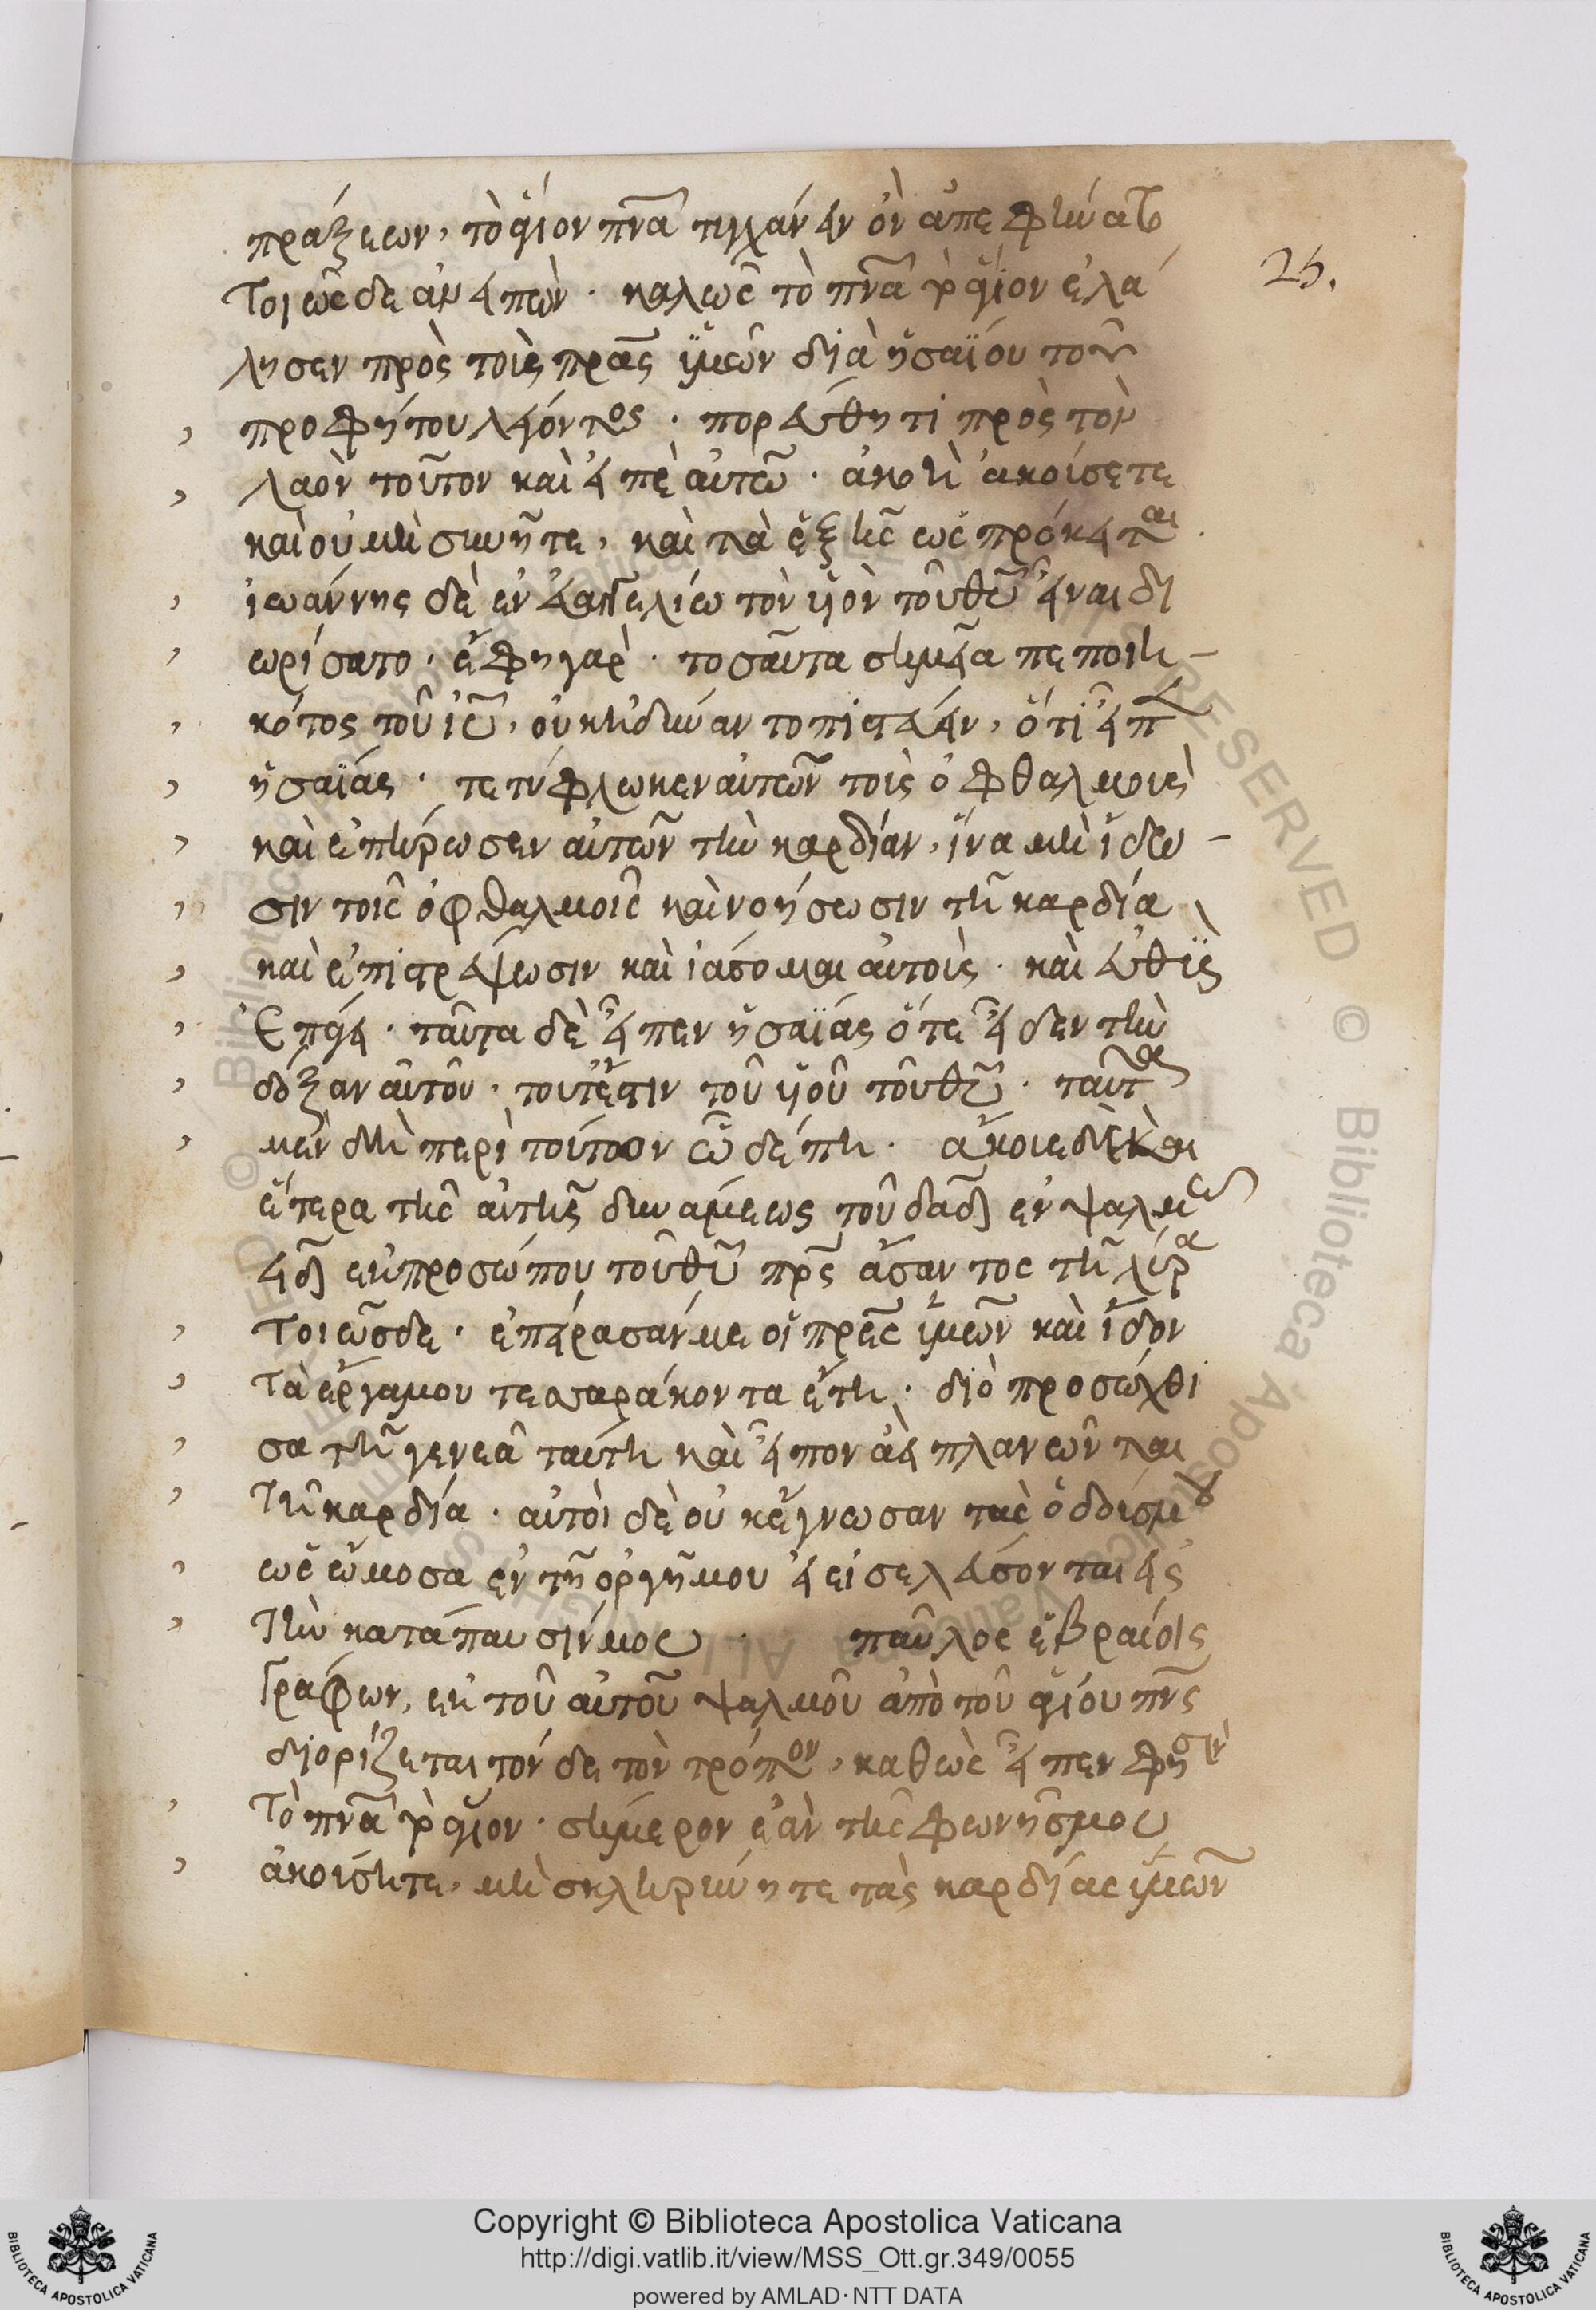 25.
πράξεων, τὸ ἅγιον πνα τυγχάνειν ὃν ἀπεφήνατο
τοιῶςδε ἀνειπὼν · καλῶς τὸ πνα τὸ ἅγιον ἐλά
λησεν πρὸς τοὺς πρας ὑμῶν διὰ ἡσαΐου τοῦ
προφήτου λέγοντος · πορεύθητι πρὸς τὸν
λαὸν τοῦτον καὶ εἰπὲ αὐτῶ · ἀκοῆ ἀκούσετε
καὶ οὐ μὴ συνῆτε, καὶ τὰ ἑξῆς ὡς πρόκειται ·
ἰωάννης δὲ ἐν εὐαγγελίω τὸν υἱὸν τοῦ θυ εἶναι δι
ωρίσατο · ἔφη γὰρ · τοσαῦτα σημεῖα πεποιη –
κότος τοῦ ιυ, οὐκ ἠδύναντο πιστεύειν, ὅτι εἶπεν
ἡσαΐας · τετύφλωκεν αὐτῶν τοὺς ὀφθαλμοὺς
καὶ ἐπήρωσεν αὐτῶν τὴν καρδίαν, ἵνα μὴ ἴδω –
σιν τοῖς ὀφθαλμοῖς καὶ νοήσωσιν τῆ καρδία
καὶ ἐπιστρέψωσιν καὶ ἰάσομαι αὐτούς · καὶ εὐθὺς
ἐπάγει · ταῦτα δὲ εἶπεν ἡσαΐας ὅτε εἶδεν τὴν
δόξαν αὐτοῦ · τουτέστιν τοῦ υἱοῦ τοῦ θυ · ταῦτα
μὲν δὴ περὶ τούτων ὧδέ πη · ἄκουε δὴ καὶ
ἕτερα τῆς αὐτῆς δυνάμεως τοῦ δαδ ἐν ψαλμῶ
εδ ἐκ προσώπου τοῦ θυ πρς ἄσαντος τῆ λύρα
τοιῶσδε · ἐπείρασάν με οἱ πρες ὑμῶν καὶ ἴδον
τὰ ἔργα μου τεσσαράκοντα ἔτη · διὸ προσώχθι
σα τῆ γενεᾶ ταύτη καὶ εἶπον ἀεὶ πλανῶνται
τῆ καρδία · αὐτοὶ δὲ οὐκ ἔγνωσαν τὰς ὁδούς μου
ὡς ὤμοσα ἐν τῆ ὀργῆ μου εἰ εἰσελεύσονται εἰς
τὴν κατάπαυσίν μου · παῦλος ἑβραίοις
γράφων, ἐκ τοῦ αὐτοῦ ψαλμοῦ ἀπὸ τοῦ ἁγίου πνς
διορίζεται τόνδε τὸν τρόπον, καθὼς εἶπεν φησὶν
τὸ πνα τὸ ἅγιον · σήμερον ἐὰν τῆς φωνῆς μου
ἀκούσητε, μὴ σκληρύνητε τὰς καρδίας ὑμῶν
Copyright © Biblioteca Apostolica Vaticana
http://digi.vatlib.it/view/MSS_Ott.gr.349/0055
powered by AMLAD · NTT DATA